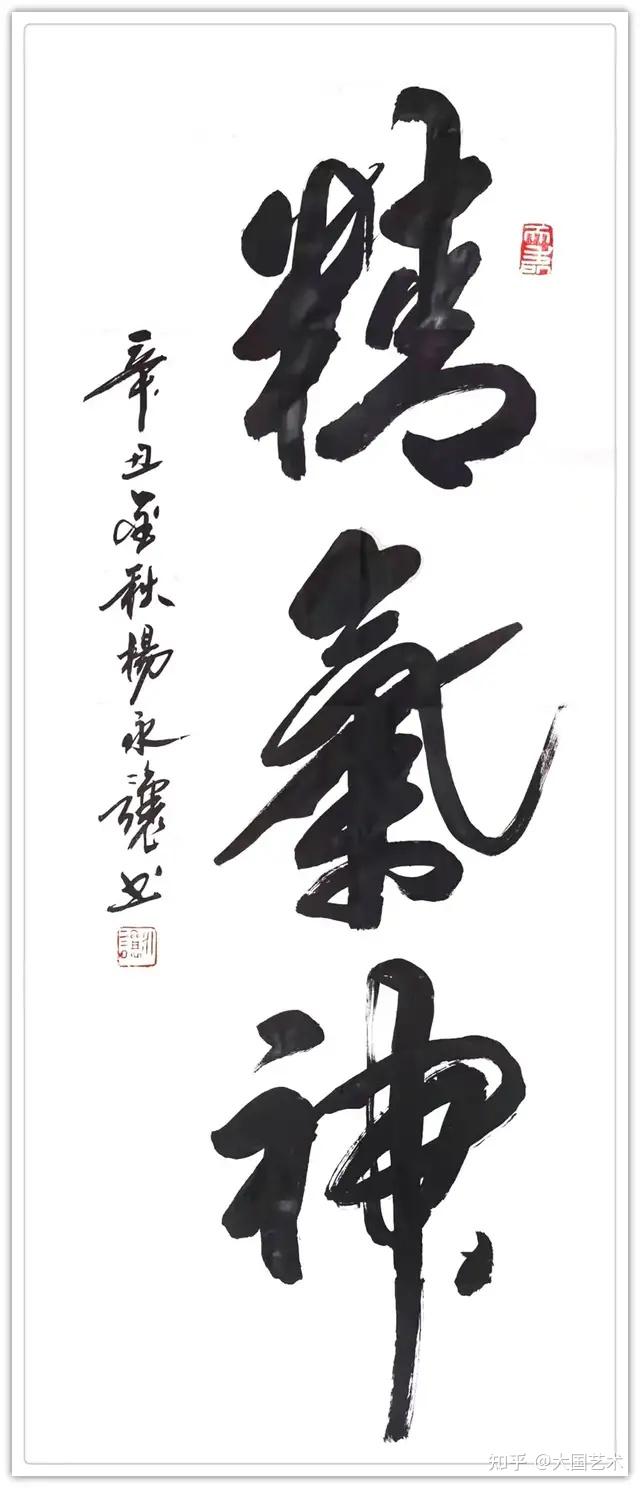 精氣神
辛丑金秋楊永讓书
知乎 @大国艺术